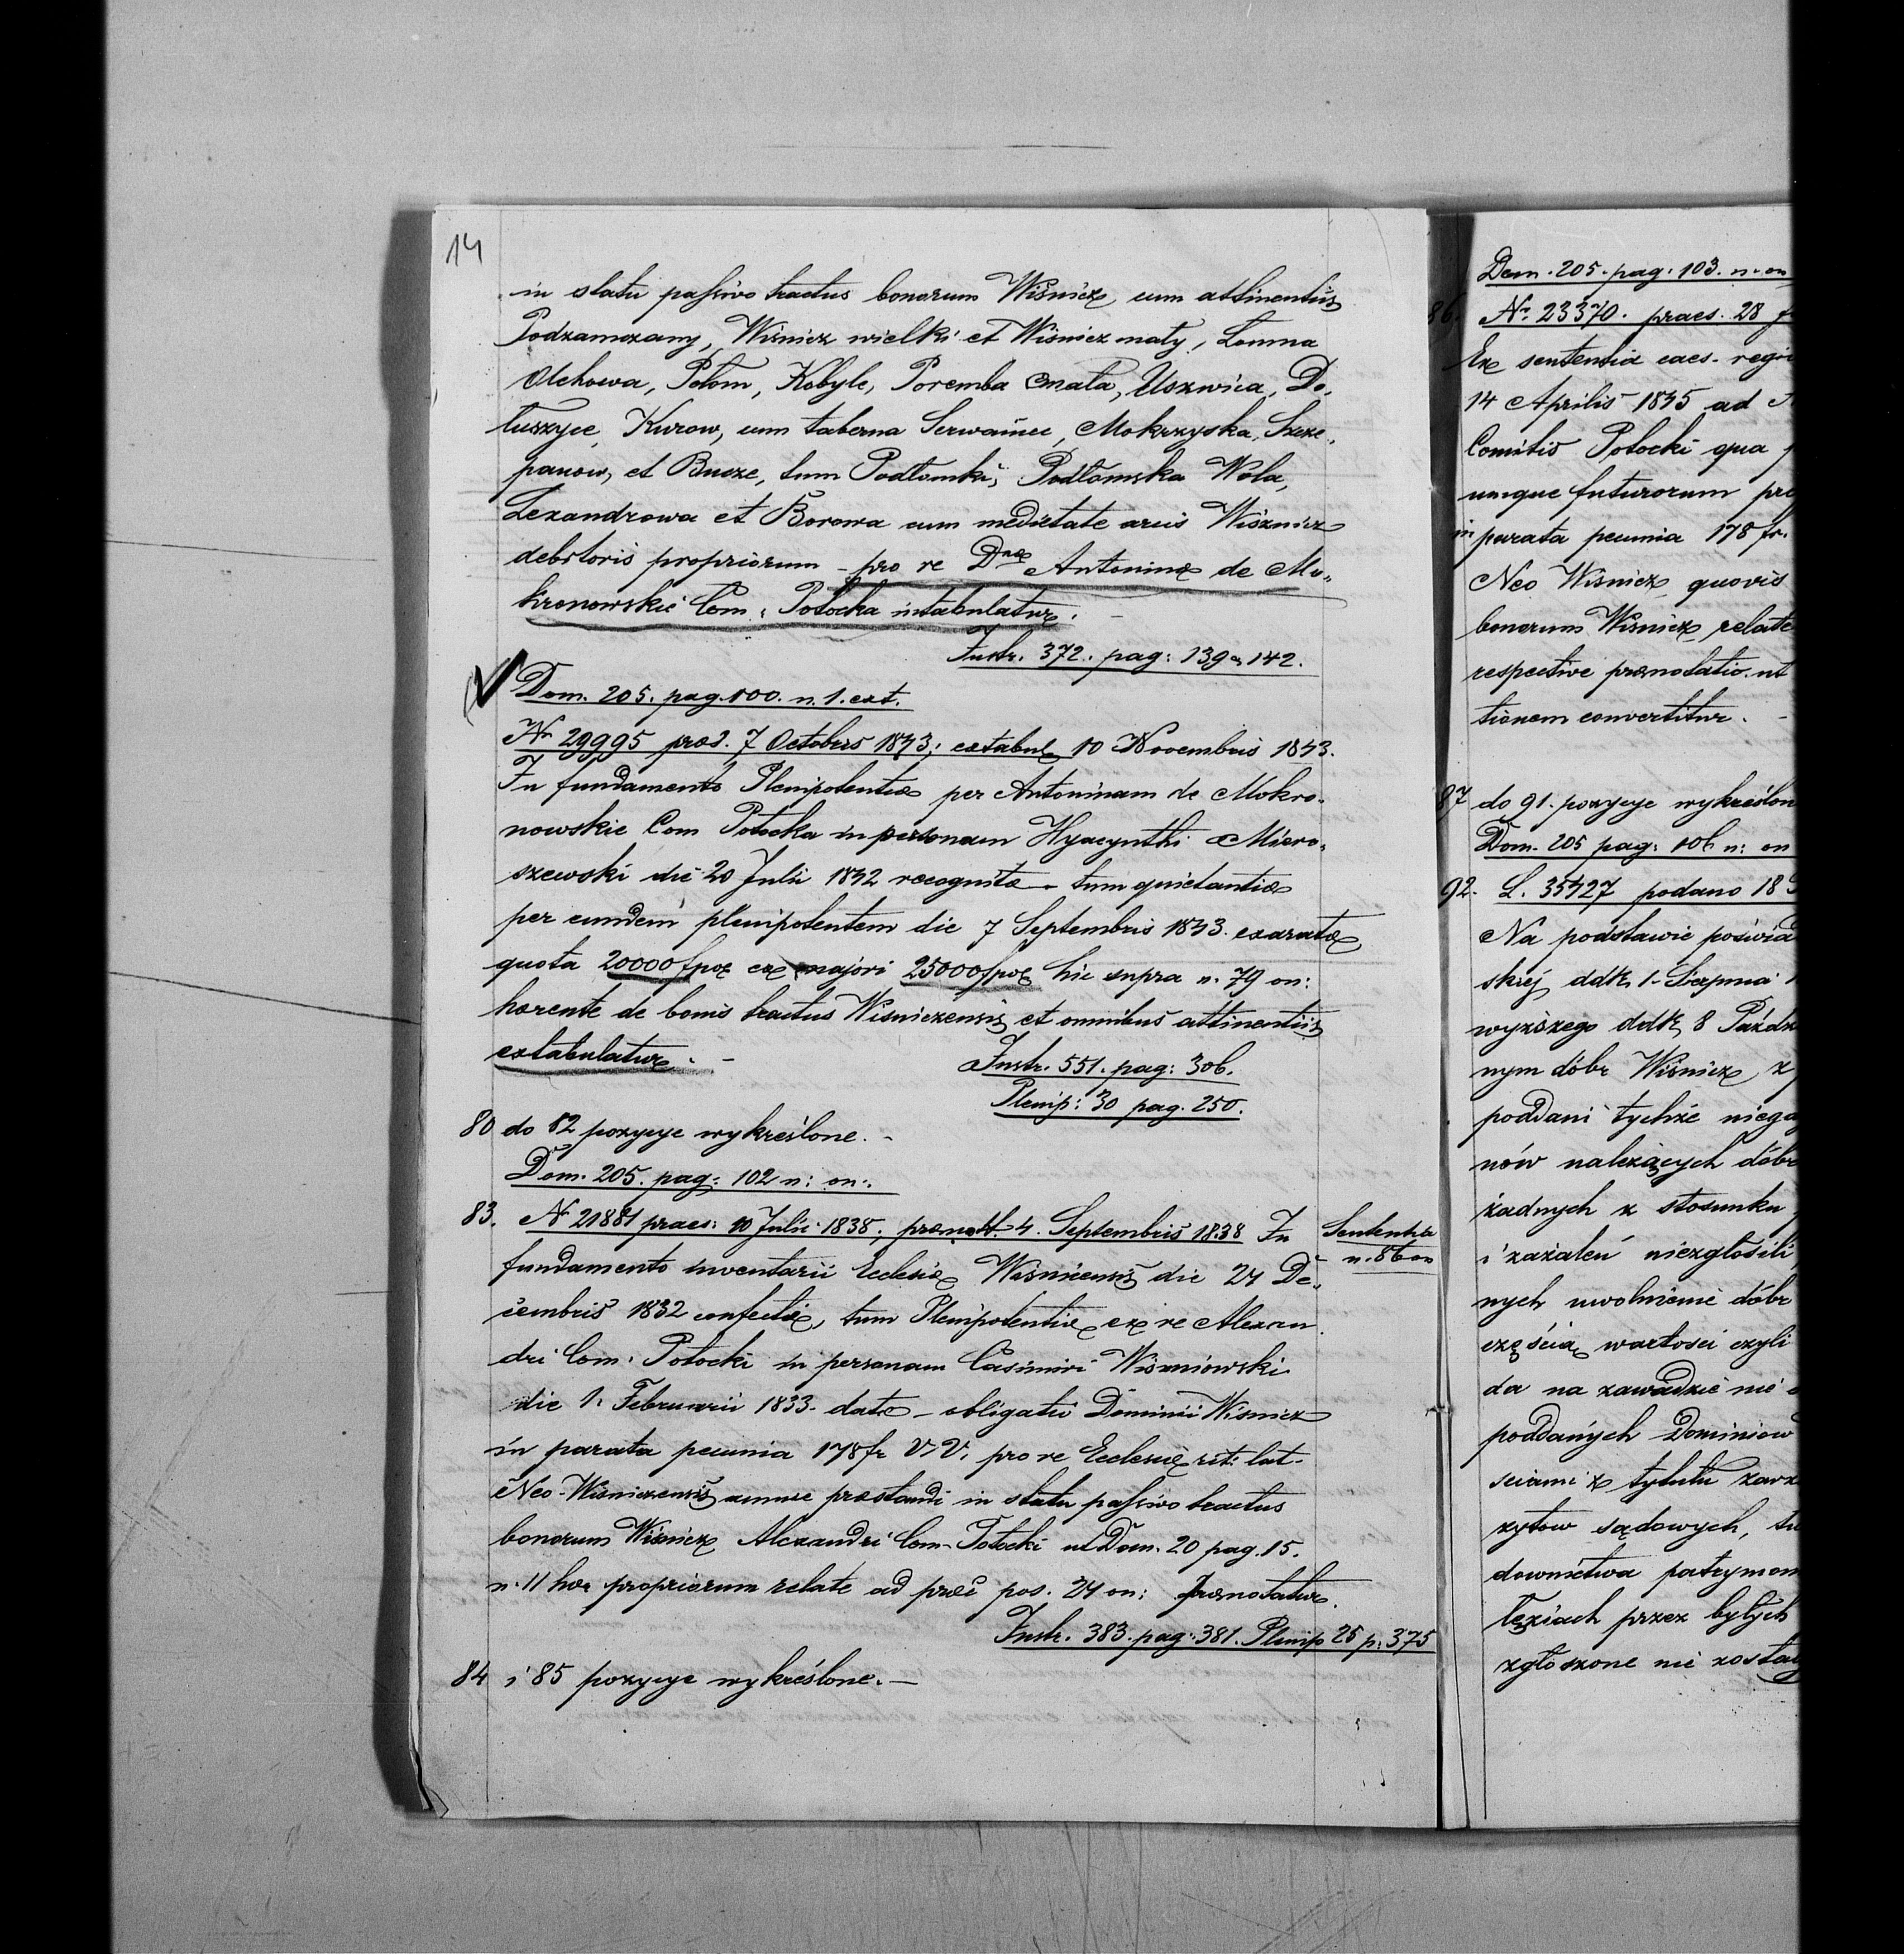 14
in statu passivo tractus bonorum Wiśnicz cum attinentiis
Podzamczany, Wiśnicz wielki et Wiśnicz mały, Łomna
Olchowa, Połom, Kobyle, Poremba mała, Uszwica, Do„
łuszyce, Kurow, cum taberna Serwaniec, Mokrzyska, Szcze„
panow, et Bucze, tum Podłomki, Podłomska Wola,
Lexandrowa et Borowa cum medietate arcis Wiśznicz
debitoris propriorum – pro re Dnae Antoninae de Mo„
kronowskie Com: Potocka intabulatur. –
Instr. 372. pag: 139 142.
Dom. 205. pag. 100. n. 1. ext.
Nr 29995 praes. 7 Octobris 1843; extabul 10 Novembris 1843.
In fundamento Plenipotentiae per Antoninam de Mokro„
nowskie Com Potocka in personam Hyacynthi Miero„
szewski die 20 Julii 1842 recognitae – tum quietantiae
per eundem plenipotentem die 7 Septembris 1843. exaratae
quota 20000 fpol ex majori 25000 fpol hic supra n. 79 on:
haerente de bonis tractus Wiśniczensis et omnibus attinentiis
extabulatur. –
Instr. 551. pag: 306.
Plenip: 30 pag. 250.
80 do 82 pozycye wykreślone. –
Dom. 205. pag: 102 n: on:
83. Nr 21881 praes: 10 Julii 1838; praenot. 4. Septembris 1838 In
Sententia
n. 86 on
fundamento inventarii Ecclesiae Wiśnicensis die 24 De„
cembris 1832 confectae, tum Plenipotentiae ex re Alexan
dri Com: Potocki in personam Casimiri Wiśniowski
die 1. Februarii 1833. datae – obligatio Dominii Wiśnicz
in parata pecunia 178 fr V. V. pro re Ecclesiae rit: lat.
Neo-Wiśniczensis annue praestandi in statu passivo tractus
bonorum Wiśnicz Alexandri Com. Potocki ut Dom. 20 pag. 15.
n. 11 propriorum relate ad pos. 24 on: praenotatur.
Instr. 383. pag: 381. Plenip 25 p: 375
84 i 85 pozycye wykreślone. –
Dom. 205. pag: 103. n. on
86. Nr. 23370. praes. 28
Ex sententia caes. regi
14 Aprilis 1845 ad
Comitis Potocki qua
umque futurorum pro
in parata pecunia 178 fr.
Neo Wiśnicz quovis
bonorum Wiśnicz relate
respective praenotatio ut
tionem convertitur. –
87 do 91. pozycye wykreślon
Dom. 205 pag: 106 n: on
92. L. 35427 podano 18
Na podstawie poświad
skiej ddto 1. Sierpnia
wyższego ddto 8 Paźdz
nym dóbr Wiśnicz z
poddani tychże niega
nów należących dóbr
żadnych z stosunku
i zażaleń niezgłosili
nych uwolnienie dóbr
częścią wartości czyli
da na zawadzie nie
poddanych Dominiow
sciami z tytułu zarz
zytow sądowych, tu
downictwa patrymon
łęziach przez byłych
zgłoszone nie zosta